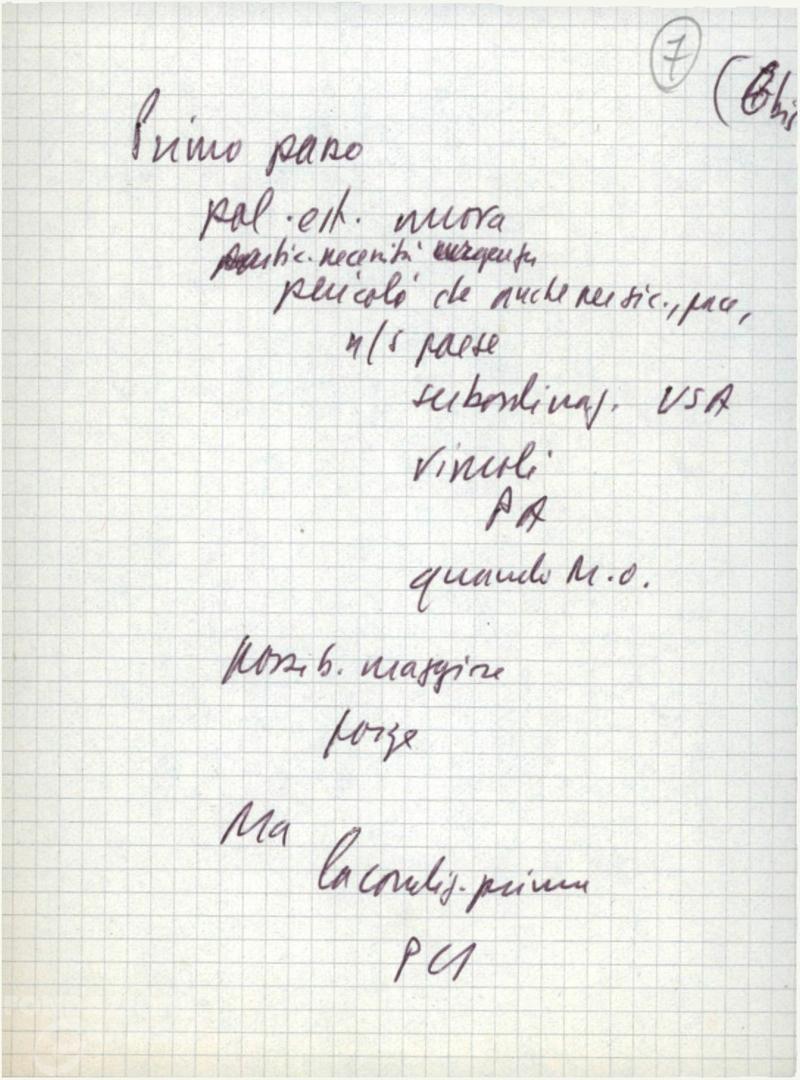 7
(6 bis
Primo passo
pol. est. nuova
partic. necessità urgenza
pericoli che anche per sic., pace,
n/s paese
subordinaz. USA
vincoli
PA
quando M.O.
possib. maggiore
forze
Ma
la condiz. prima
PCI